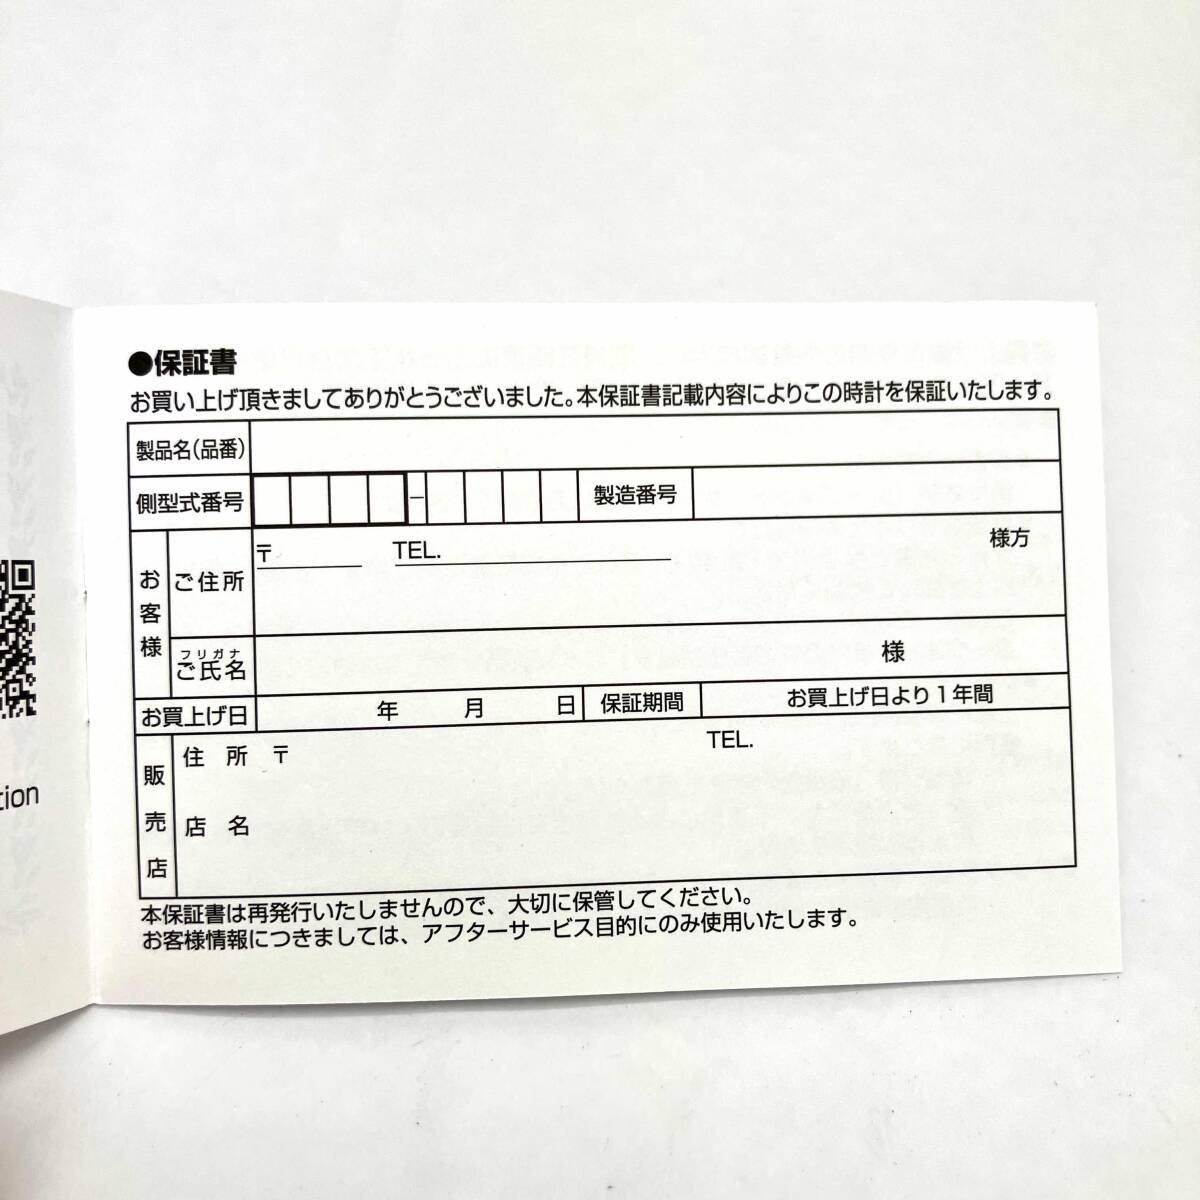 ●保証書
お買い上げ頂きましてありがとうございました。本保証書記載内容によりこの時計を保証いたします。
製品名(品番)
側型式番号 － 製造番号
お客様
ご住所 〒 TEL. 様方
フリガナ
ご氏名 様
お買上げ日 年 月 日 保証期間 お買上げ日より1年間
販売店
住 所 〒 TEL.
店 名
本保証書は再発行いたしませんので、大切に保管してください。
お客様情報につきましては、アフターサービス目的にのみ使用いたします。
tion